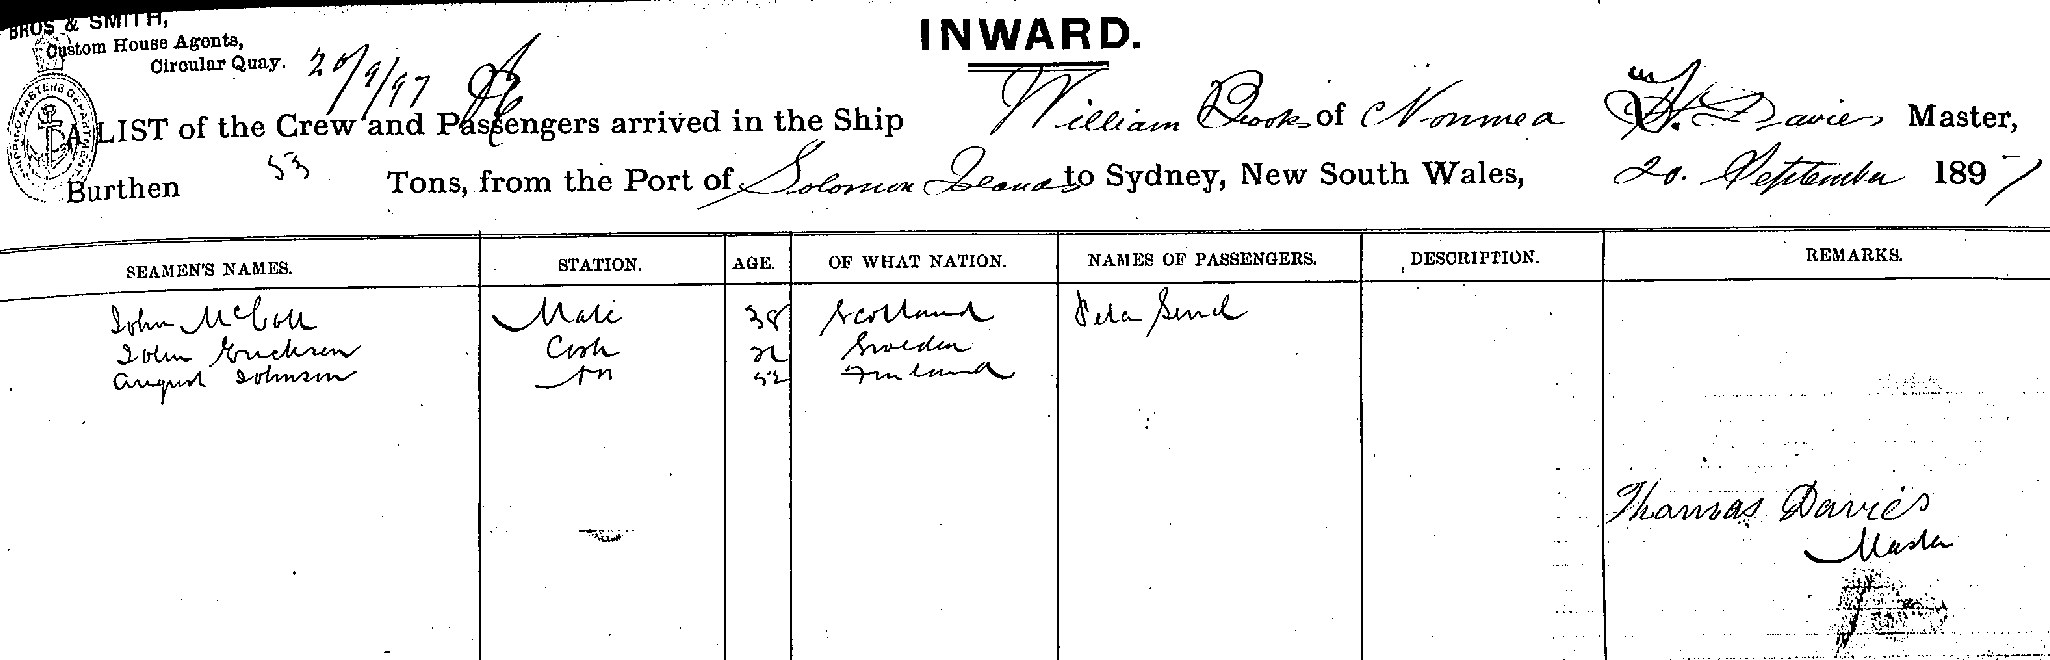 BROS & SMITH,
Custom House Agents,
Circular Quay.
20/9/97
INWARD.
A LIST of the Crew and Passengers arrived in the Ship William Brooks of Noumea Davies Master,
Burthen 53 Tons, from the Port of Solomon Islands to Sydney, New South Wales, 20. September 1897
SEAMEN'S NAMES. STATION. AGE. OF WHAT NATION. NAMES OF PASSENGERS. DESCRIPTION. REMARKS.
John McColl Mate 38 Scotland Peter
John Erichsen Cook Sweden
August Johnson Finland
Thomas Davies
Master